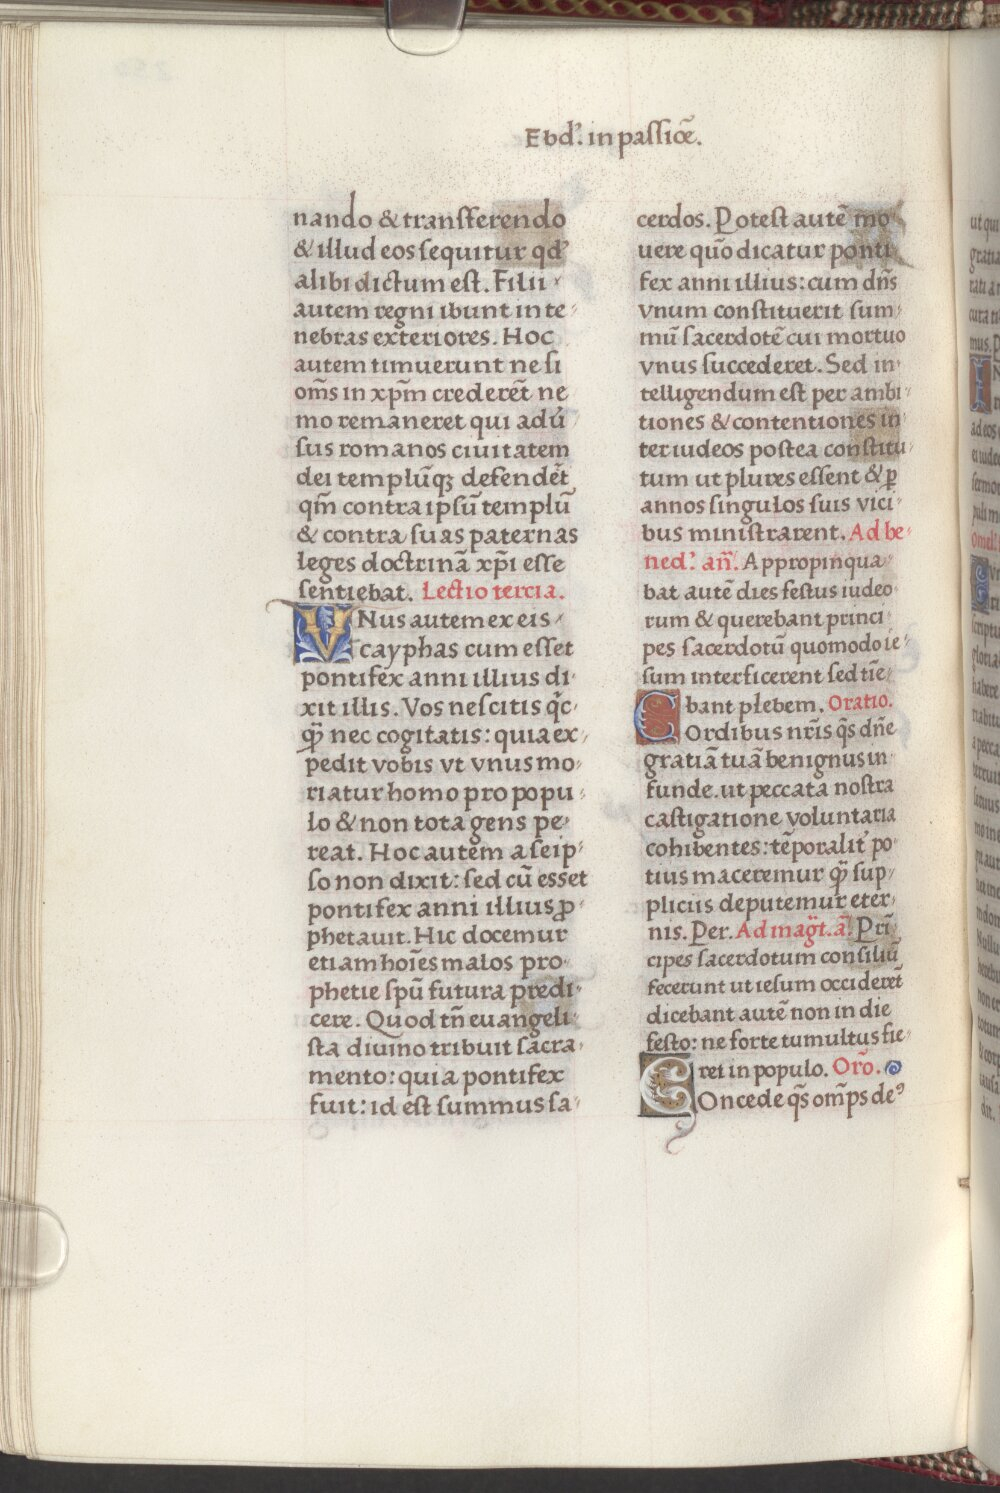 Ebd'. in passiõe.
nando & transferendo
& illud eos sequitur qd'
alibi dictum est. Filii
autem regni ibunt in te
nebras exteriores. Hoc
autem timuerunt ne si
om̃s in xp̃m crederẽt ne
mo remaneret qui adú
sus romanos ciuitatem
dei templũq; defendẽt
qm̃ contra ipsũ templũ
& contra suas paternas
leges doctrinã xp̃i esse
sentiebat. Lectio tercia.
VNus autem ex eis
cayphas cum esset
pontifex anni illius di
xit illis. Vos nescitis q̃c
q̃ nec cogitatis: quia ex
pedit vobis vt vnus mo
riatur homo pro popu
lo & non tota gens pe
reat. Hoc autem a seip
so non dixit: sed cũ esset
pontifex anni illius ꝓ
phetauit. Hic docemur
etiam hoĩes malos pro
phetie spũ futura predi
cere. Quod tñ euangeli
sta diuino tribuit sacra
mento: quia pontifex
fuit: id est summus sa
cerdos. Potest autẽ mo
uere quõ dicatur ponti
fex anni illius: cum dñs
vnum constituerit sum
mũ sacerdotẽ cui mortuo
vnus succederet. Sed in
telligendum est per ambi
tiones & contentiones in
ter iudeos postea constitu
tum ut plures essent & ꝑ
annos singulos suis vici
bus ministrarent. Ad be
ned'. añ. Appropinqua
bat autẽ dies festus iudeo
rum & querebant princi
pes sacerdotũ quomodo ie
sum interficerent sed tĩe
bant plebem. Oratio.
COrdibus nr̃is q̃s dñe
gratiã tuã benignus in
funde. ut peccata nostra
castigatione voluntaria
cohibentes: tẽporalit' po
tius maceremur q̃ sup
pliciis deputemur eter
nis. Per. Ad magt̃. ã. Prĩ
cipes sacerdotum consiliũ
fecerunt ut iesum occiderẽt
dicebant autẽ non in die
festo: ne forte tumultus fie
ret in populo. Orõ.
COncede q̃s om̃ps de'